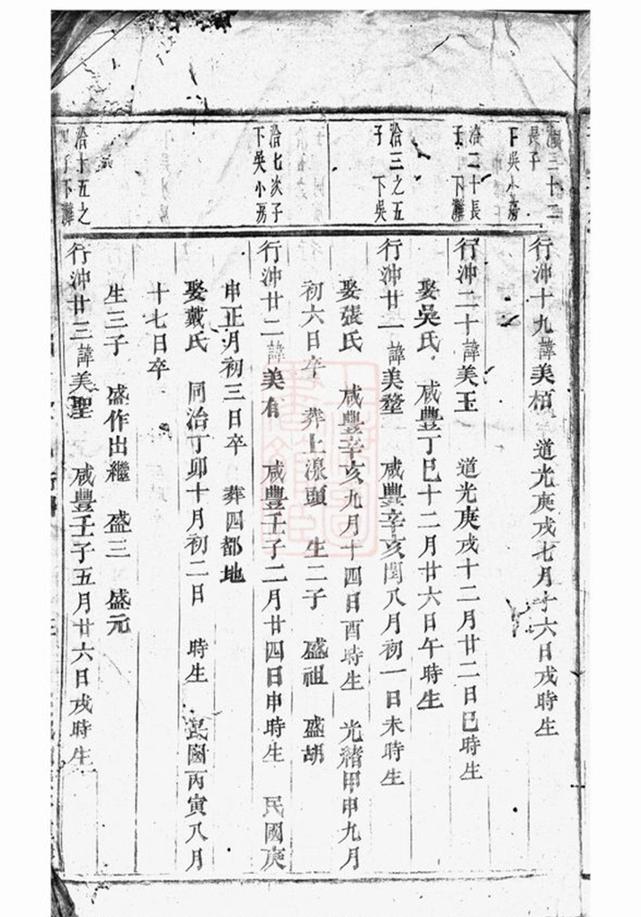 三十二
長子
下吳小房
行沖十九諱美栢 道光庚戌七月十六日戌時生
洽二十長
子 下灘
行沖二十諱美玉 道光庚戌十二月廿二日巳時生
娶吳氏 咸豐丁巳十二月廿六日午時生
洽三之五
子 下吳
行沖廿一諱美 咸豐辛亥閏八月初一日未時生
娶張氏 咸豐辛亥九月十四日酉時生 光緒甲申九月
初六日卒 葬上漾頭 生二子 盛祖 盛胡
洽七次子
下吳小房
行沖廿二諱美有 咸豐壬子二月廿四日申時生 民國庚
申正月初三日卒 葬四都地
娶戴氏 同治丁卯十月初二日 時生 民國丙寅八月
十七日卒
生三子 盛作出繼 盛三 盛元
洽十五之
子下灘
行沖廿三諱美聖 咸豐壬子五月廿六日戌時生